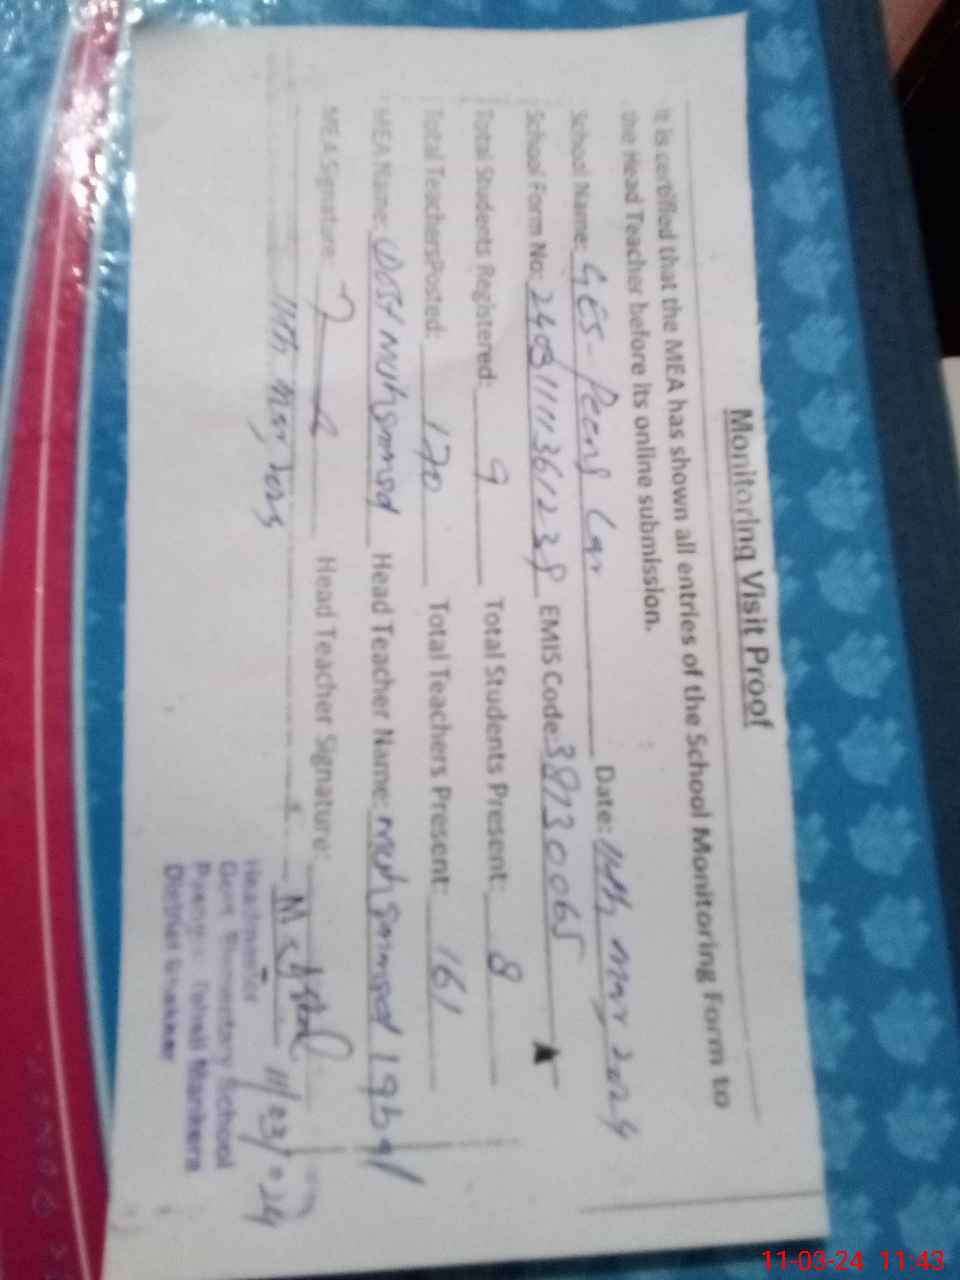 Monitoring Visit Proof
It is certified that the MEA has shown all entries of the School Monitoring Form to
the Head Teacher before its online submission.
School Name: GES- Date: 11th mar 2024
School Form No: EMIS Code: 38130065
Total Students Registered: 9 Total Students Present: 8
Total TeachersPosted: 170 Total Teachers Present: 161
MEA Name: Dost Muhammad Head Teacher Name: Muhammad Iqbal
MEA Signature: Head Teacher Signature:
11th Mar, 11/03/024
Headmaster
Govt. Elementary School
Tehsil Mankera
District Bhakkar
11-03-24 11:43